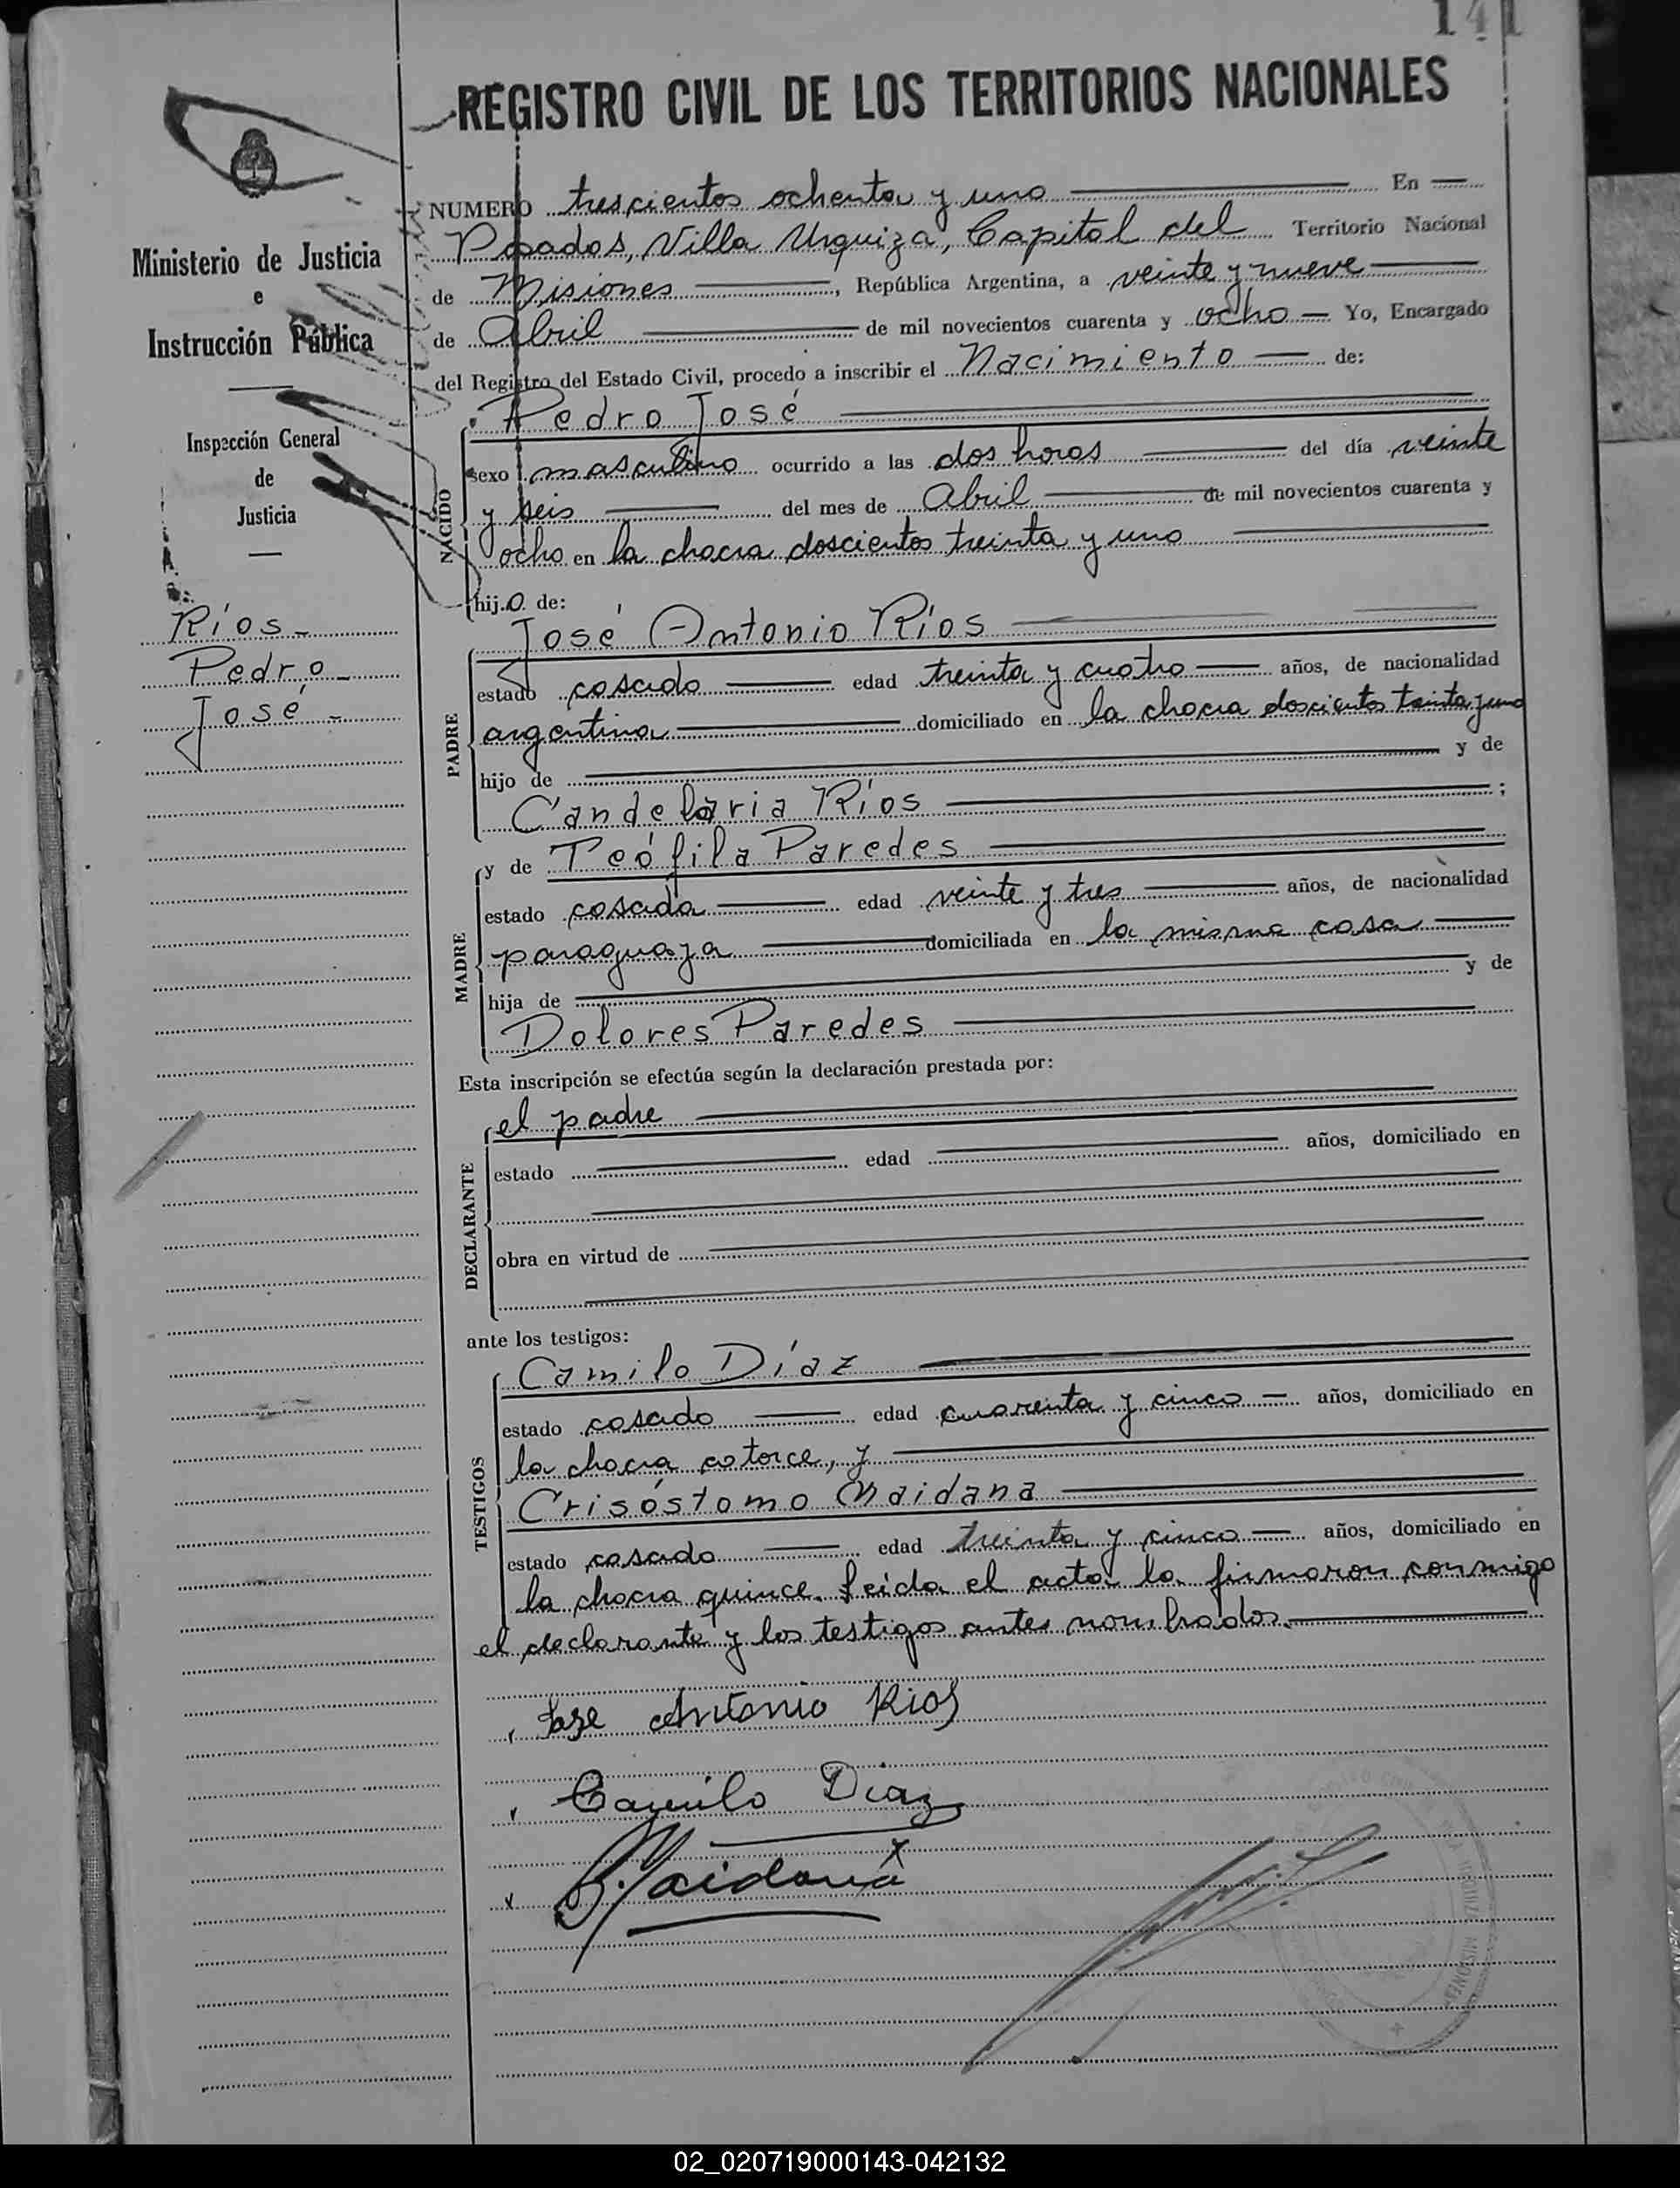 141
REGISTRO CIVIL DE LOS TERRITORIOS NACIONALES
Ministerio de Justicia
e
Instrucción Pública
Inspección General
de
Justicia
Ríos
Pedro
José
NUMERO trescientos ochenta y uno En
Posadas, Villa Urquiza, Capital del Territorio Nacional
de Misiones, República Argentina, a veinte y nueve
de Abril de mil novecientos cuarenta y ocho Yo, Encargado
del Registro del Estado Civil, procedo a inscribir el Nacimiento de:
NACIDO
Pedro José
sexo masculino ocurrido a las dos horas del día veinte
y seis del mes de Abril de mil novecientos cuarenta y
ocho en la chacra doscientos treinta y uno
hijo de:
PADRE
José Antonio Ríos
estado casado edad treinta y cuatro años, de nacionalidad
argentina domiciliado en la chacra doscientos treinta y uno
hijo de y de
Candelaria Ríos ;
MADRE
y de Teófila Paredes
estado casada edad veinte y tres años, de nacionalidad
paraguaya domiciliada en la misma casa
hija de y de
Dolores Paredes
Esta inscripción se efectúa según la declaración prestada por:
DECLARANTE
el padre
estado edad años, domiciliado en
obra en virtud de
ante los testigos:
TESTIGOS
Camilo Díaz
estado casado edad cuarenta y cinco años, domiciliado en
la chacra catorce, y
Crisóstomo Maidana
estado casado edad treinta y cinco años, domiciliado en
la chacra quince. Leida el acta la firmaron conmigo
el declarante y los testigos antes nombrados.
Jose Antonio Rios
Camilo Diaz
Maidana
URQUIZA MISIONES
02_020719000143-042132